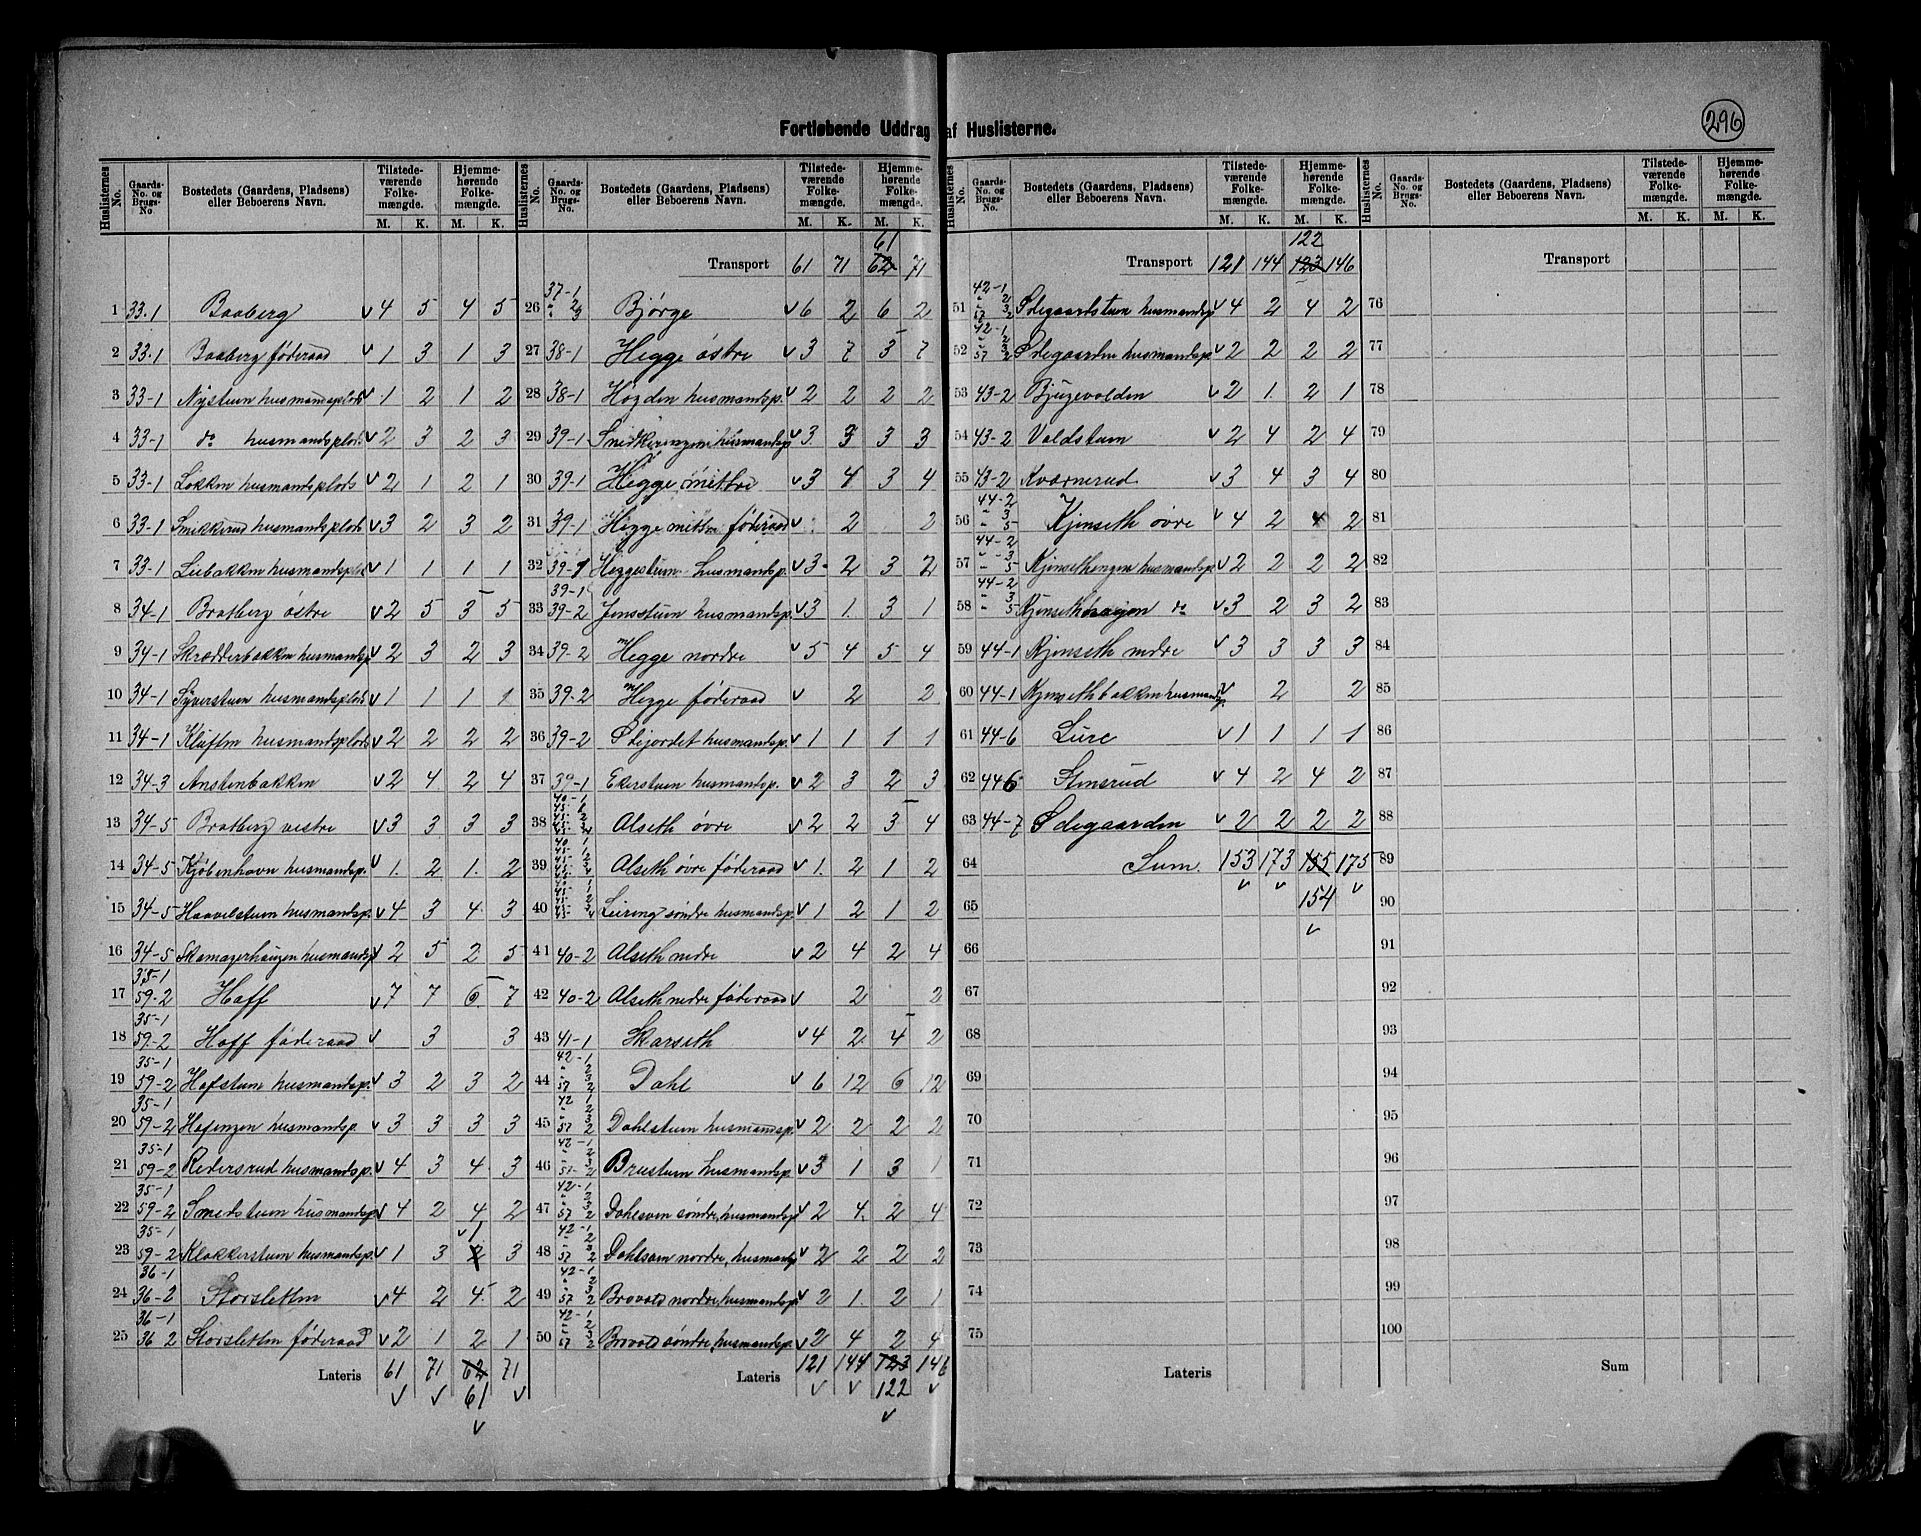 296
Fortløbende Uddrag af Huslisterne.
Huslisternes No. | Gaards-No. og Brugs-No. | Bostedets (Gaardens, Pladsens) eller Beboerens Navn. | Tilstedeværende Folkemængde. M. K. | Hjemmehørende Folkemængde. M. K.
1 33-1 Baaberg v 4 5 4 5
2 33-1 Baaberg føderaad v 1 3 1 3
3 33-1 Nystuen husmandsplads v 1 2 1 2
4 33-1 do husmandsplads v 2 3 2 3
5 33-1 Løkken husmandsplads v 2 1 2 1
6 33-1 husmandsplads v 3 2 3 2
7 33-1 Liebakken husmandsplds v 1 1 1 1
8 34-1 Bratberg østre v 2 5 3 5
9 34-1 Skrædderbakken husmandsp. v 2 3 2 3
10 34-1 Syverstuen husmandsplads v 1 1 1 1
11 34-1 Kluften husmandsplads v 2 2 2 2
12 34-3 Anstenbakken v 2 4 2 4
13 34-5 Bratberg vestre v 3 3 3 3
14 34-5 Kjøbenhavn husmandsp. v 1 2 1 2
15 34-5 Haavelstuen husmandsp. v 4 3 4 3
16 34-5 husmandsp v 2 5 2 5
17 35-1 59-2 Hoff v 7 7 6 7
18 35-1 59-2 Hoff føderaad v 3 3
19 35-1 59-2 Hofstuen husmandsp. v 3 2 3 2
20 35-1 59-2 Hofengen husmandsp. v 3 3 3 3
21 35-1 59-2 husmandsp. v 4 3 4 3
22 35-1 59-2 Smedstuen husmandsp v 4 2 4 2
23 35-1 59-2 Klokkerstuen husmandsp. v 1 3 2 v1 3
24 36-1 36-2 Storsletten v 4 2 4 2
25 36-1 36-2 Storsletten føderaad v 2 1 2 1
Lateris 61 71 62 71
v v 61 v
v
Huslisternes No. | Gaards-No. og Brugs-No. | Bostedets (Gaardens, Pladsens) eller Beboerens Navn. | Tilstedeværende Folkemængde. M. K. | Hjemmehørende Folkemængde. M. K.
61
Transport 61 71 62 71
26 37-1 " 2 " 3 Bjørge v 6 2 6 2
27 38-1 Hegge østre v 3 7 3 7
28 38-1 husmandsp. v 2 2 2 2
29 39-1 husmandsp v 3 3 3 3
30 39-1 Hegge mittre v 3 4 3 4
31 39-1 Hegge mittre føderaad v 2 2
32 39-1 Heggestuen husmandsp. v 3 2 3 2
33 39-1 39-2 Jensstuen husmandsp. v 3 1 3 1
34 39-2 Hegge nordre v 5 4 5 4
35 39-2 Hegge føderaad v 2 2
36 39-2 husmandsp. v 1 1 1 1
37 39-1 Ekerstuen husmandsp. v 2 3 2 3
38 Alseth øvre v 2 2 3 4
39 Alseth øvre føderaad v 1 2 1 2
40 søndre husmandsp v 1 2 1 2
41 40-2 Alseth nedre v 2 4 2 4
42 40-2 Alseth nedre føderaad v 2 2
43 41-1 Skarseth v 4 2 4 2
44 42-1 " 2 " 3 57 2 Dahl v 6 12 6 12
45 42 1 " 2 " 3 57 2 Dahlstuen husmandsp. v 2 2 2 2
46 42-1 " 2 " 3 57-2 Brustuen husmandsp. v 3 1 3 1
47 42-1 " 2 " 3 57 2 søndre, husmandsp v 2 4 2 4
48 42-1 " 2 " 3 57 2 nordre, husmandsp v 2 2 2 2
49 42-1 " 2 " 3 57 2 Brovold nordre, husmandsp v 2 1 2 1
50 42-1 " 2 " 3 57 2 Brovold søndre, husmandsp. v 2 4 2 4
Lateris 121 144 123 146
v v 122 v
v
Huslisternes No. | Gaards-No. og Brugs-No. | Bostedets (Gaardens, Pladsens) eller Beboerens Navn. | Tilstedeværende Folkemængde. M. K. | Hjemmehørende Folkemængde. M. K.
122
Transport 121 144 123 146
51 42-1 " 2 " 3 57 2 Ødegaardstuen husmandsp v 4 2 4 2
52 42-1 " 2 " 3 57 2 Ødegaarden husmandsp. v 2 2 2 2
53 43-2 v 2 1 2 1
54 43-2 Voldstuen v 2 4 2 4
55 43-2 Kværnerud v 3 4 3 4
56 44-2 " 3 " 5 Kjenseth øvre v 4 2 4 2
57 44-2 " 3 " 5 Kjensethengen husmandsp v 2 2 2 2
58 44-2 " 3 " 5 Kjensethhaugen do v 3 2 3 2
59 44-1 Kjenseth nedre v 3 3 3 3
60 44-1 Kjensethbakken husmandsp. v 2 2
61 44-6 Lure v 1 1 1 1
62 44 6 v 4 2 4 2
63 44-7 Ødegaarden v 2 2 2 2
64 Sum. 153 173 155 175
v v v
65 154
66 v
67
68
69
70
71
72
73
74
75
Lateris
Huslisternes No. | Gaards-No. og Brugs-No. | Bostedets (Gaardens, Pladsens) eller Beboerens Navn. | Tilstedeværende Folkemængde. M. K. | Hjemmehørende Folkemængde. M. K.
Transport
76
77
78
79
80
81
82
83
84
85
86
87
88
89
90
91
92
93
94
95
96
97
98
99
100
Sum